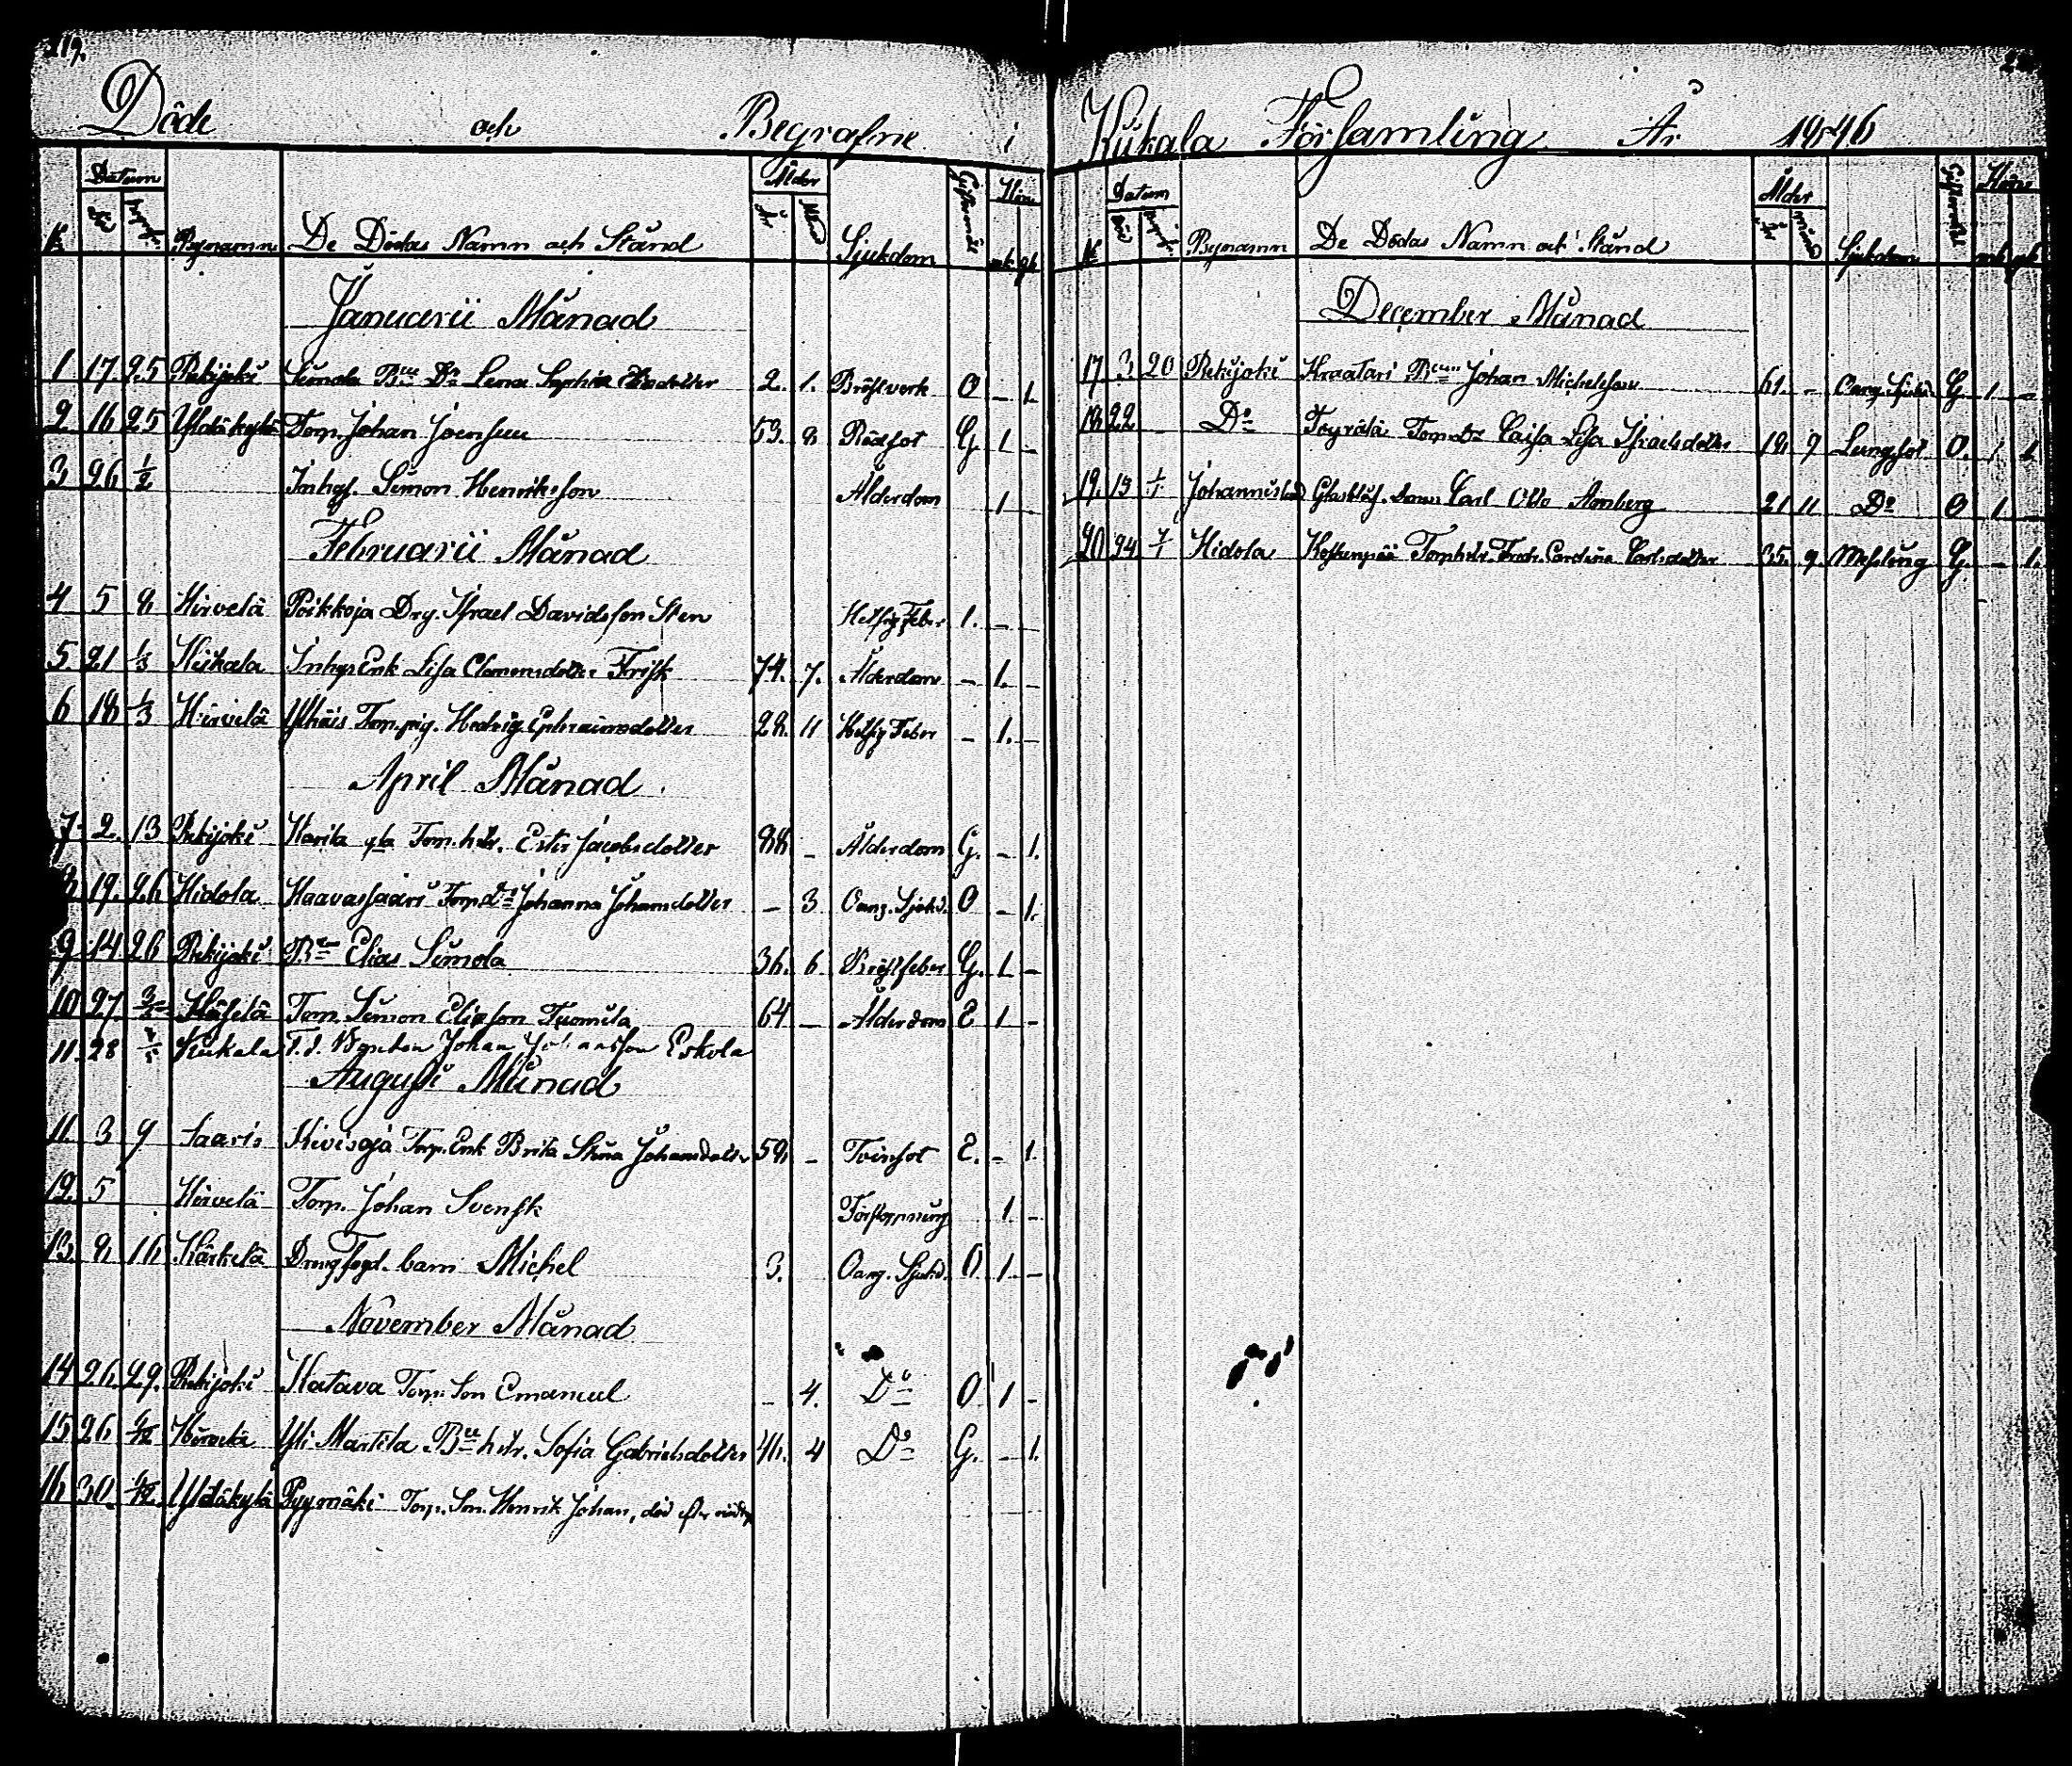 219.
Döde och Begrafne i
N: Datum Död begr: Bynamn De Dödas Namn och Stånd Ålder År Mån Sjukdom Giftermål Kön mk qk
Januarii Månad
1. 17. 25 Rekijoki Simola B:de D:r Lena Sophia Eliedotter 2. 1. Bröstverk O – 1.
2. 16 25 Yldäkylä Torp. Johan Joensuu 53. 8 Rödsot G. 1 –
3 26 1/2 Inhys. Simon Henriksson Ålderdom 1
Februarii Månad
4 5 8 Hirvelä Poikkoja Drg. Israel Davidsson Sten Hetsig Feber 1. –
5. 21 1/3 Kiikala Inhys Enk Lisa Clemensdotter Frisk 74. 7. Ålderdom – 1. –
6 18 1/3 Hirvelä Ylhäis Torp. pig. Hedvig Ephraimsdotter 28. 11 Hetsig Feber – 1. –
April Månad
7. 2. 13 Rekijoki Harila gla Torp. hstr. Ester Jacobsdotter 88 – Ålderdom G. – 1.
8 19. 26 Hidola Haavassaari Torp d:r Johanna Johansdotter – 3 Oang. Sjukd. O – 1.
9 14 26 Rekijoki B:den Elias Simola 36. 6 Bröstfeber G. 1 –
10 27. 3/5 Torp. Simon Eliasson Tuomila 64 – Ålderdom E 1 –
11. 28 3/5 Kiikala F. d. Bonden Johan Johansson Eskola
Augusti Månad
11. 3 9 Saaris Kivisoja Torp. Enk Brita Stina Johansdotter 58 – Tvinsot E. – 1.
12. 5 Hirvelä Torp. Johan Svensk Förstoppning 1 –
13. 8. 16 Kärkelä Drng barn Michel 3. Oang. Sjukd. O 1 –
November Månad
14 26. 29. Rekijoki Katava Torp. Son Emanuel – 4. D:o O 1 –
15 26 6/12 Hirvelä Yli Martila B:de hstr. Sofia Gabrielsdotter 46. 4 D:o G. – 1.
16 30. 6/12 Yldäkylä Pyymäki Torp. Son Henrik Johan, död efter nöddop
Kiikala Församling År 1846
N: Datum Död begr: Bynamn De Dödas Namn och Stånd Ålder År Mån Sjukdom Giftermål Kön mk qk
December Månad
17 3. 20 Rekijoki Kraatari B:den Johan Michelsson 61. – Oang. Sjukd. G. 1. –
18 22 – D:o Töyrälä Torp D:r Caisa Lisa Israelsdotter 18 9 Lungsot O. 1 1
19. 13 1/1 Johannislund Glasblås. barn Carl Otto Armberg 21 11 D:o O 1 –
20 24. 7/1 Hidola Koskenpää Torp hstr. Fredr. Carolina Carlsdotter 35. 9. Messling G. – 1.